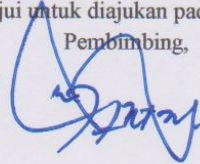 jui untuk diajukan pad
Pembimbing,